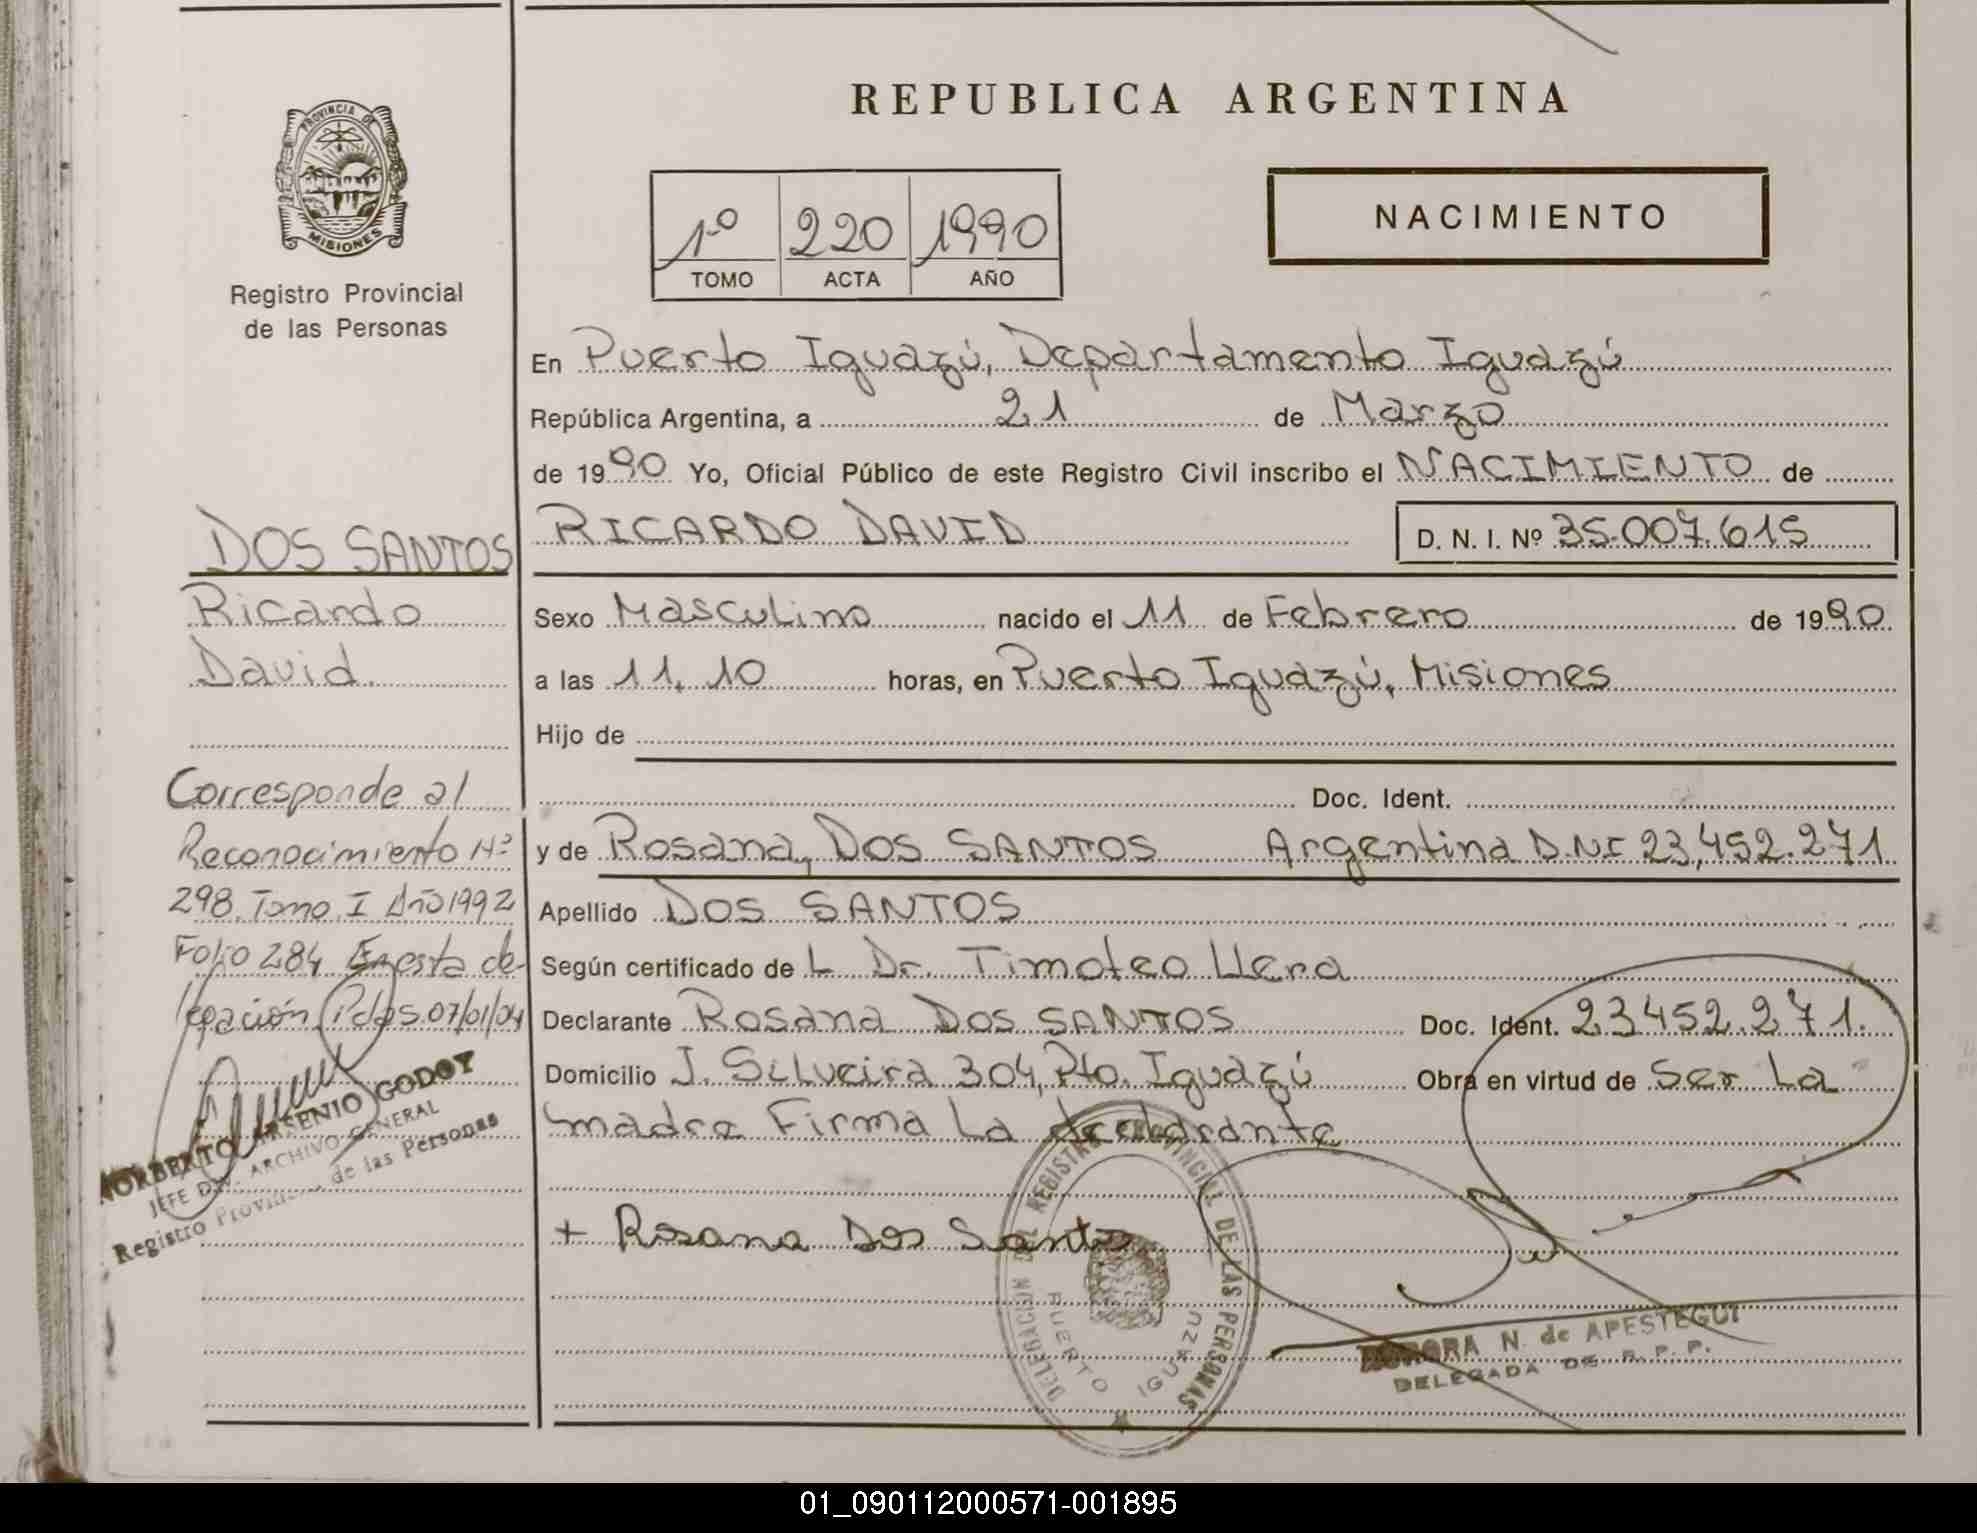 REPUBLICA ARGENTINA
PROVINCIA DE
MISIONES
Registro Provincial
de las Personas
1º 220 1990
TOMO ACTA AÑO
NACIMIENTO
En Puerto Iguazú, Departamento Iguazú
República Argentina, a 21 de Marzo
de 1990 Yo, Oficial Público de este Registro Civil inscribo el NACIMIENTO de
RICARDO DAVID D. N. I. Nº 35.007.615
Sexo Masculino nacido el 11 de Febrero de 1990
a las 11,10 horas, en Puerto Iguazú, Misiones
Hijo de
Doc. Ident.
y de Rosana, DOS SANTOS Argentina D.NI 23,452.271
Apellido DOS SANTOS
Según certificado de L Dr. Timoteo Llera
Declarante Rosana DOS SANTOS Doc. Ident. 23452.271.
Domicilio J. Silveira 304, Pto. Iguazú Obra en virtud de Ser La
madre Firma La declarante
+ Rosana Dos Santos
DELEGACION DEL REGISTRO PROVINCIAL DE LAS PERSONAS
PUERTO IGUAZU
N. de APESTEGUI
DELEGADA DE R. P. P.
DOS SANTOS
Ricardo
David.
Corresponde al
Reconocimiento Nº
298, Tomo I Año 1992
Folio 284 En esta de-
legación Pdas. 07/01/04
NORBERTO ARSENIO GODOY
JEFE DIV. ARCHIVO GENERAL
Registro Provincial de las Personas
01_090112000571-001895